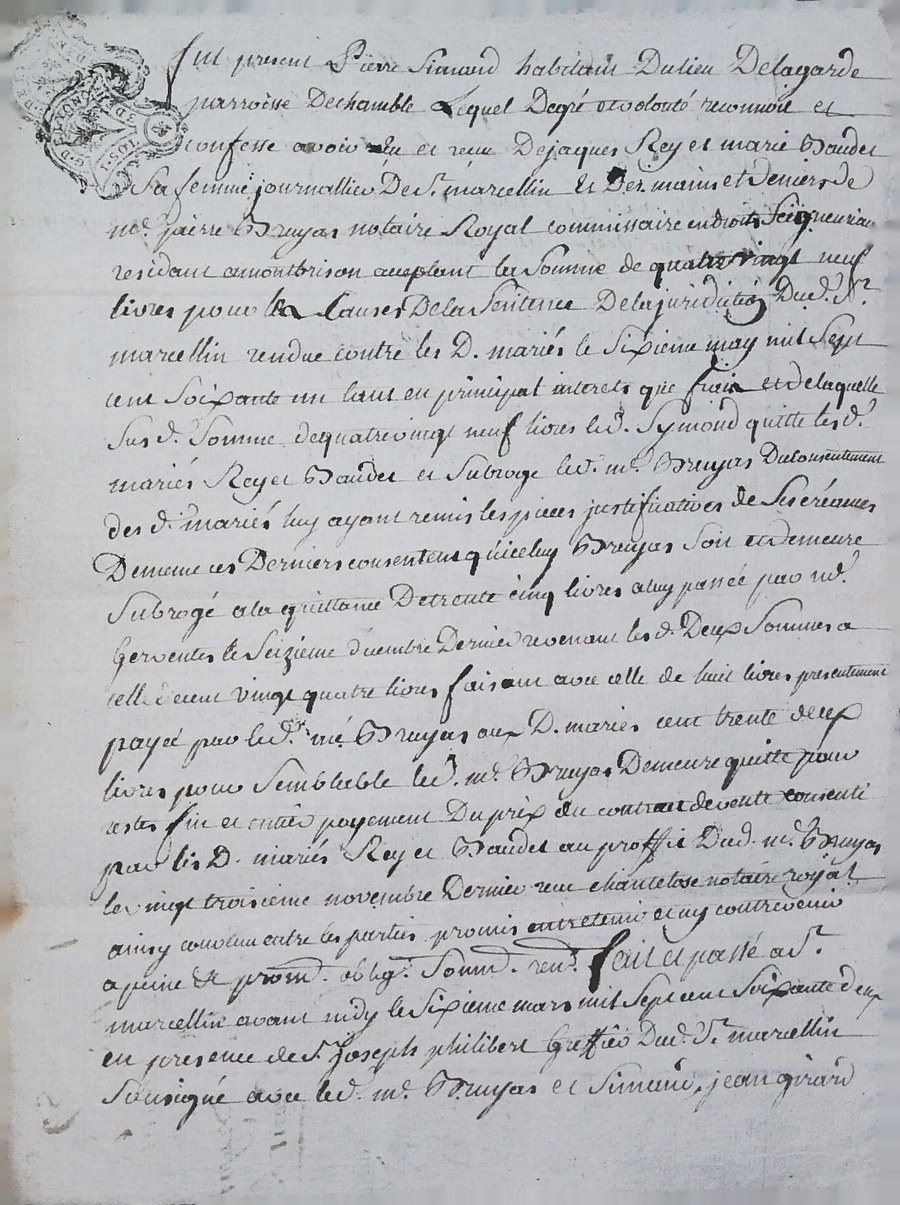 fut present Pierre Simand habitant Dulieu Delagarde
parroisse Dechamble Lequel Degré et volonté reconnoit et
confesse avoir Eu et receu Dejaques Rey et marie Baudet
Sa femme journallier De St. marcellin Et Des mains et deniers de
me. pierre Bruyas notaire Royal commissaire en droits Seigneuriau
residant amontbrison aceptant la Somme de quatre vingt neuf
livres pour les Causes De la Sentence De lajuridiction Dud. St.
marcellin rendue contre les D. mariés le Sixieme may mil Sept
cent Soixante un tant en principal interets que frais et delaquelle
Sus d. Somme dequatrevingt neuf livres led. Symond quitte les d.
mariés Rey et Baudet et Subroge led. me. Bruyas Du Consentement
des d. mariés luy ayant remis les pieces justificatives de Ses créances
Demême ces Derniers consentent qu'iceluy Bruyas Soit et demeure
Subrogé ala quittance Detrente cinq livres aluy passée par me.
le Seizieme décembre Dernier revenant les d. Deux Sommes a
celle decent vingt quatre livres faisant avec celle de huit livres presentement
payée par led. me. Bruyas aux D. mariés cent trente deux
livres pour Semblable led. me. Bruyas Demeure quitte pour
restes fin et entier payement Du prix du contrat devente consenti
par les D. mariés Rey et Baudet au proffit Dud. me. Bruyas
le vingt troisieme novembre Dernier receu chantelose notaire royal
ainsy convenu entre les parties promis entretenir et ny contrevenir
a peine & prom. oblig. Soum. ren. fait et passé a St.
marcellin avant midy le Sixieme mars mil Sept cent Soixante deux
en presence de Sr. Joseph philibert Greffier Dud. St. marcellin
Sousigné avec led. me. Bruyas et Simand, jean girard